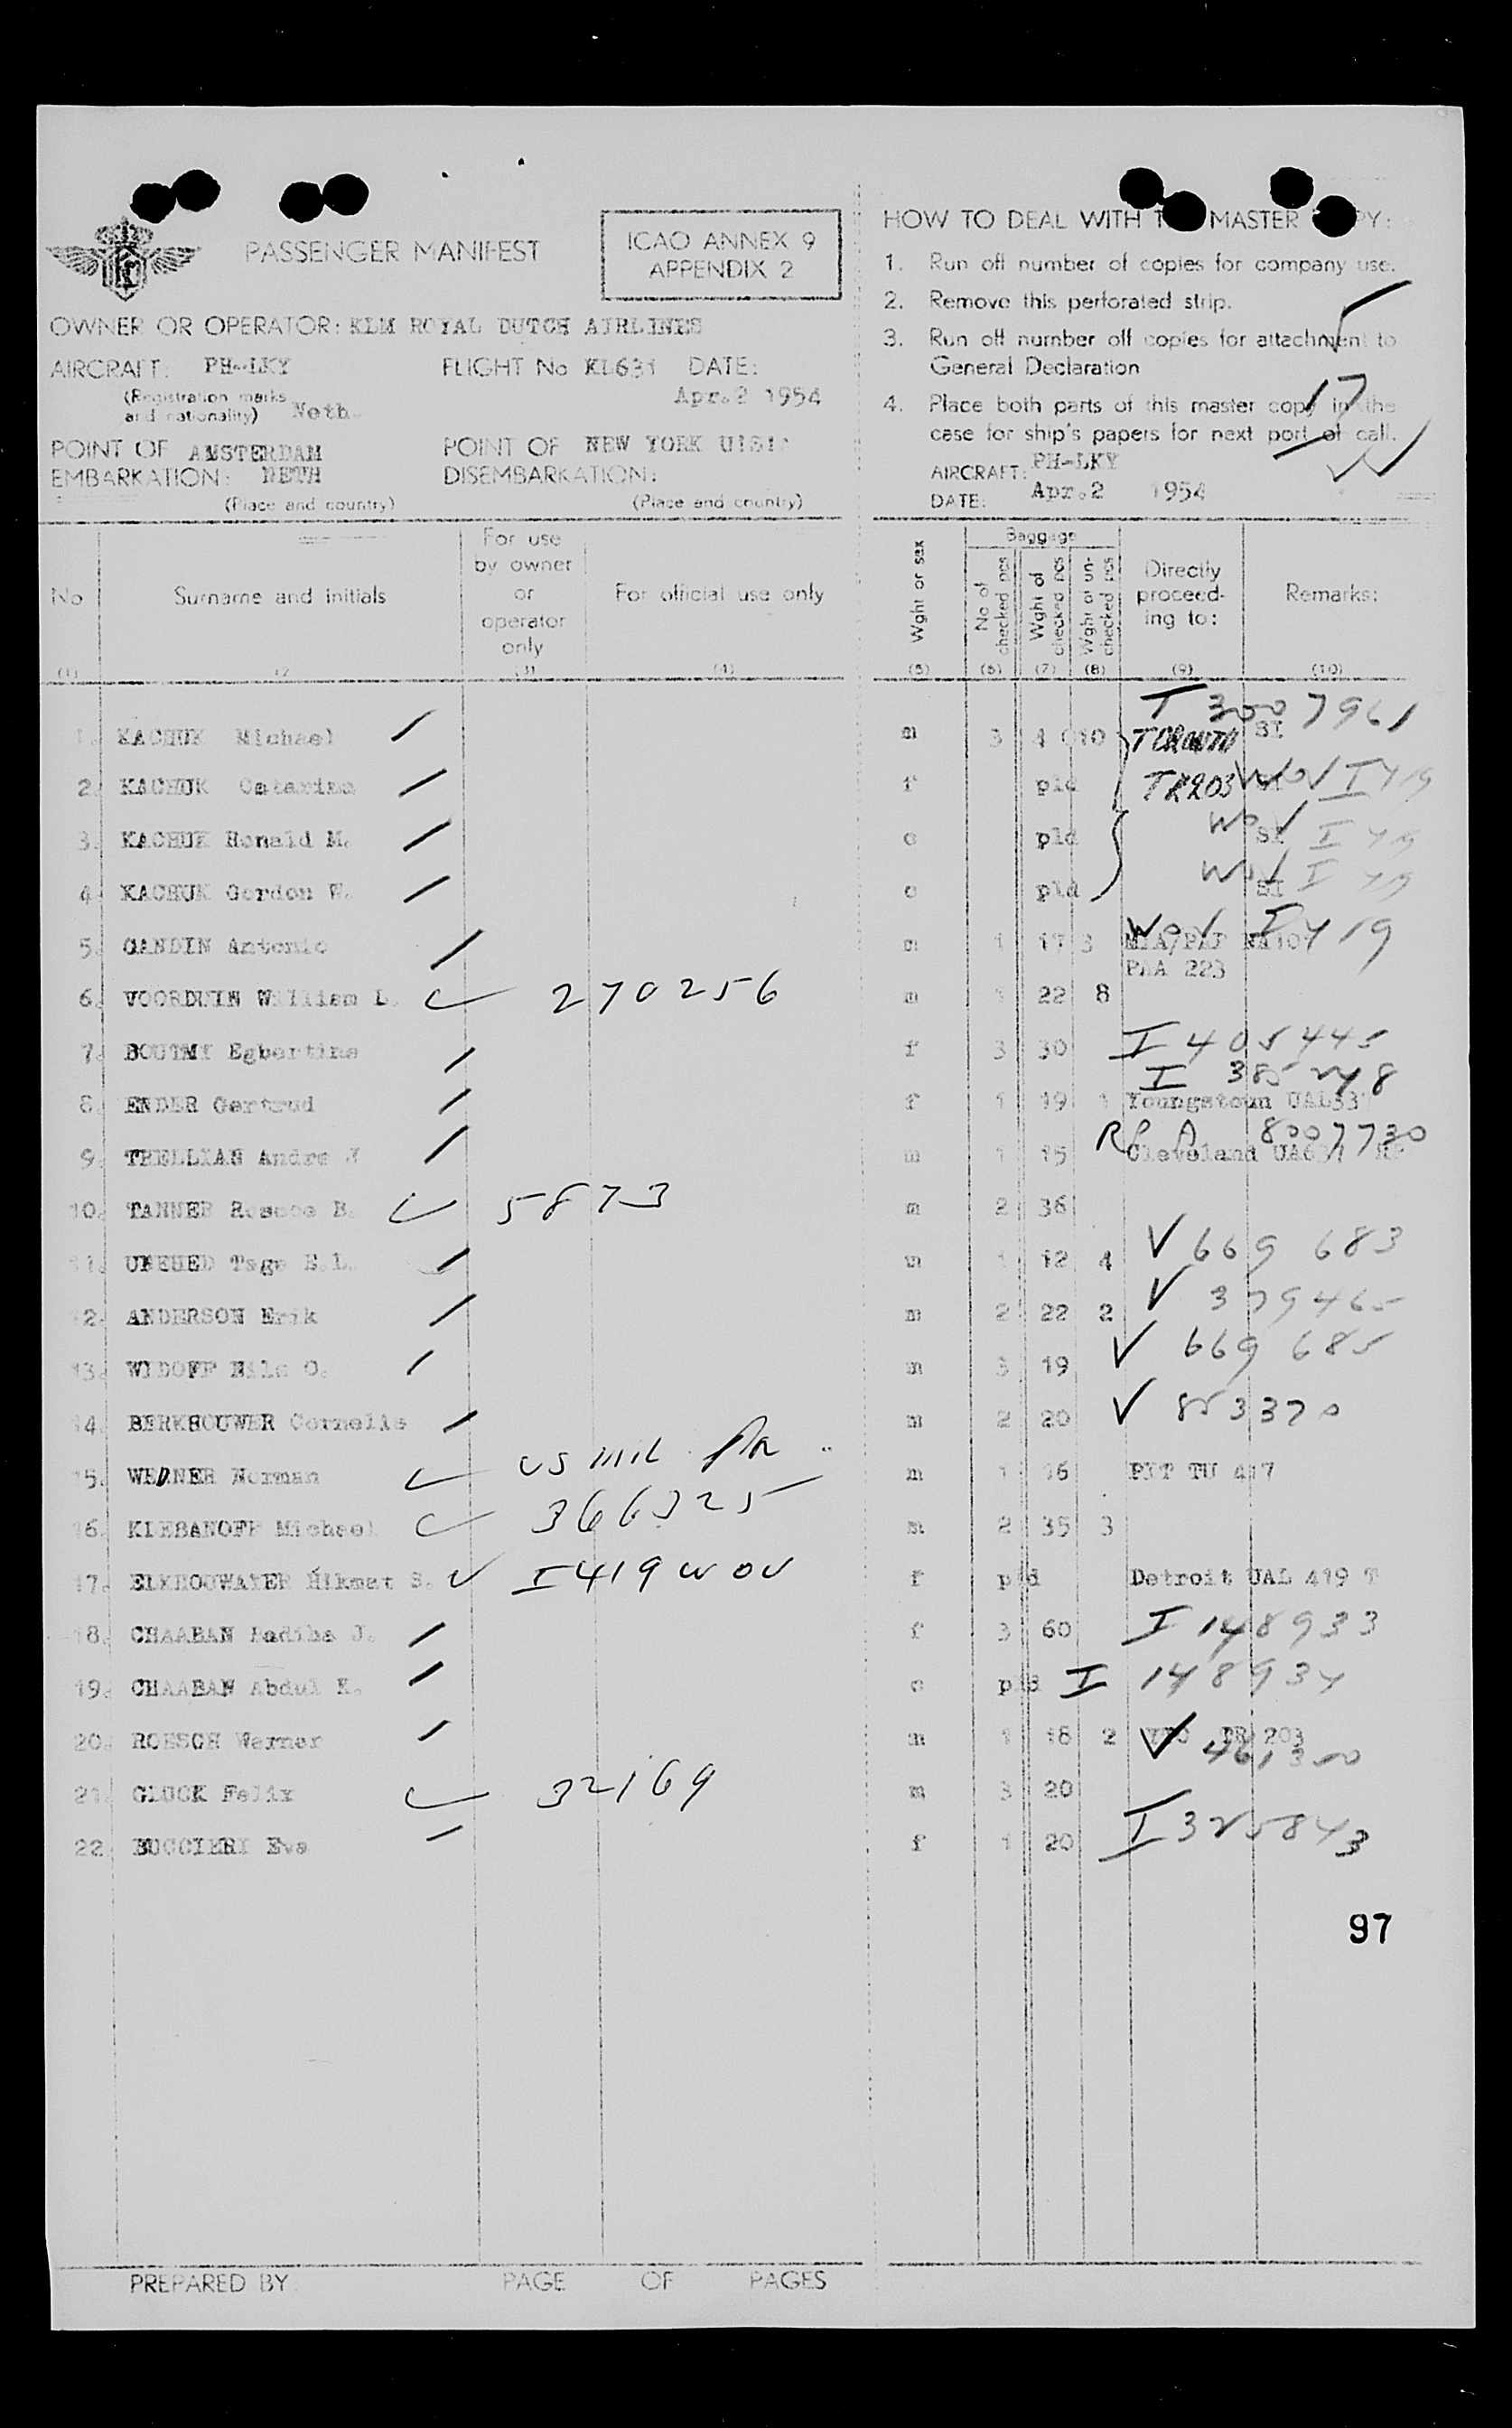 PASSENGER MANIFEST
ICAO ANNEX 9
APPENDIX 2
OWNER OR OPERATOR: KLM ROYAL DUTCH AIRLINES
AIRCRAFT: PH-LKY FLIGHT No KL631 DATE:
(Registration marks and nationality) Neth. Apr.2 1954
POINT OF EMBARKATION: AMSTERDAM NETH
(Place and country)
POINT OF DISEMBARKATION: NEW YORK
(Place and country)
HOW TO DEAL WITH MASTER
1. Run off number of copies for company use.
2. Remove this perforated strip.
3. Run off number off copies for attachment to
General Declaration
4. Place both parts of this master copy in the
case for ship's papers for next port of call.
17
AIRCRAFT: PH-LKY
DATE: Apr.2 1954
No
(1)
Surname and initials
(2)
For use
by owner
or
operator
only
(3)
For official use only
(4)
Wght or sex
(5)
Baggage
No of checked pcs
(6)
Wght of checked pcs
(7)
Wght of un-checked pcs
(8)
Directly
proceed-
ing to:
(9)
Remarks:
(10)
T 3007961
1. KACHUK Michael m 3 TORONTO SI
2. KACHUK Catarina f pld TR203 WOV I 419
3. KACHUK Ronald M. c pld WOV SI I 419
4. KACHUK Gordon W. c pld WOV SI I 419
5. GANDIN Antonio m 1 17 3 WOV I 419
PAA 223
6. VOORDUIN William L. 270256 m 1 22 8
7. BOUTMY Egbertina f 3 30 I 405445
I 385248
8. ENDER Gertrud f 1 19 1 Youngstown UAL33
8007730
9. TRELLIAN Andre m 1 15 Cleveland
10. TANNER Roscoe B. 5873 m 2 36
11. UNEHED Tage E.L. m 1 12 4 V 669 683
12. ANDERSON Erik m 2 22 2 V 379465
13. WIDOFF Nils O. m 3 19 V 669 685
14. BERKHOUWER Cornelis m 2 20 V 853370
15. WEDNER Norman US MIL m 1 16 PIT
16. KLEBANOFF Michael 366325 m 2 35 3
17. ELKHOUWAYER Hikmat S. I 419 WOV f pld Detroit UAL 419
18. CHAABAN Badiha J. f 3 60 I 148933
19. CHAABAN Abdul K. c pld I 148934
20. ROESCH Werner m 1 18 2 TR 203
V 461300
21. GLUCK Felix 32169 m 3 20
22. BUCCIERI Eva f 1 20 I 325843
97
PREPARED BY PAGE OF PAGES